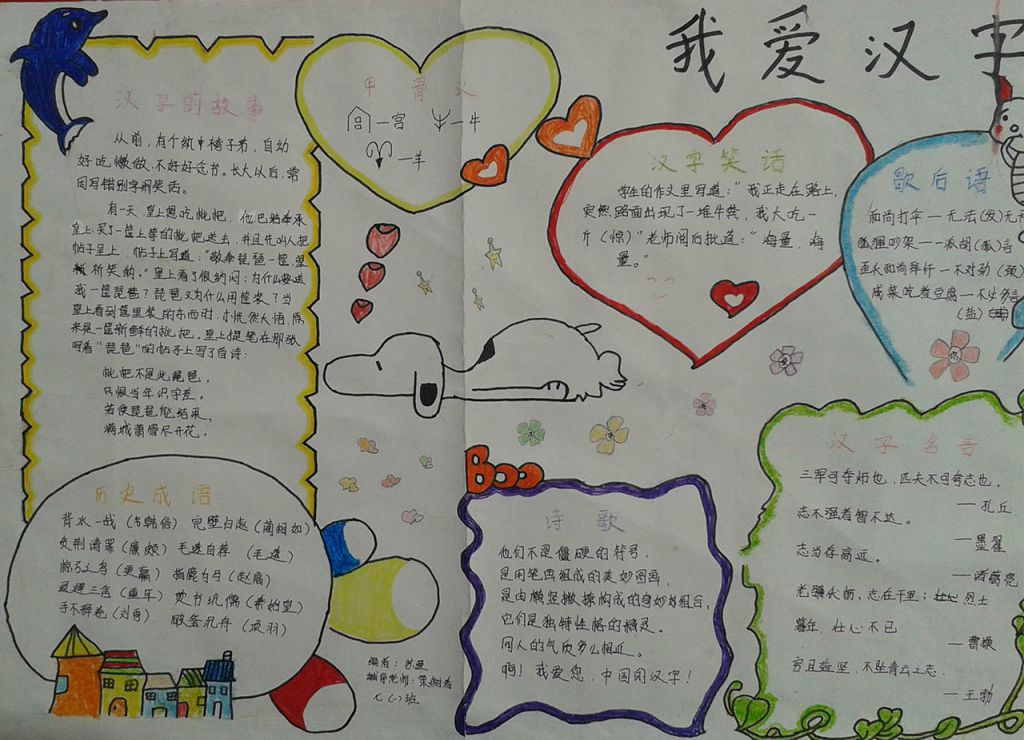 我爱汉字
汉字的故事
从前,有个纨绔子弟,自幼
好吃懒做,不好好念书。长大以后,常
因写错别字闹笑话。
有一天,皇上想吃枇杷,他巴结奉承
皇上,买了一筐上等的枇杷送去,并且先叫人把
帖子呈上,帖子上写道:“敬奉琵琶一筐,望
祈笑纳。”皇上看了很纳闷:为什么要送
我一筐琵琶?琵琶又为什么用筐装?当
皇上看到筐里装的东西时,才恍然大悟,原
来是一筐新鲜的枇杷,皇上提笔在那张
写着“琵琶”的帖子上写了首诗:
枇杷不是此琵琶,
只恨当年识字差。
若使琵琶能结果,
满城萧管尽开花。
甲骨文
一宫 一牛
一羊
汉字笑话
学生的作文里写道:“我正走在路上,
突然,路面出现了一堆牛粪,我大吃一
斤(惊)”老师阅后批道:“海量,海
量。”
歇后语
和尚打伞一无法(发)无
狐狸吵架一一派胡(狐)言
歪长和尚拜忏一不对劲(颈)
咸菜吃煮豆腐一不必多
(盐)
历史成语
背水一战(韩信) 完璧归赵(蔺相如)
负荆请罪(廉颇) 毛遂自荐 (毛遂)
惊弓之鸟(更羸) 指鹿为马(赵高)
退避三舍(重耳) 焚书坑儒(秦始皇)
手不释卷(刘秀) 破釜沉舟(项羽)
Boo
诗歌
他们不是僵硬的符号,
是用笔画组成的美妙图画,
是由横竖撇捺构成的奇妙组合,
它们是独特性格的精灵。
同人的气质多么相近。
啊!我爱您,中国的汉字!
汉字名言
三军可夺帅也,匹夫不可夺志也。
一孔丘
志不强者智不达。
一墨翟
志当存高远。
一诸葛亮
老骥伏枥,志在千里;烈士
暮年,壮心不已
一曹操
穷且益坚,不坠青云之志。
一王勃
编者:
辅导老师:
七(一)班